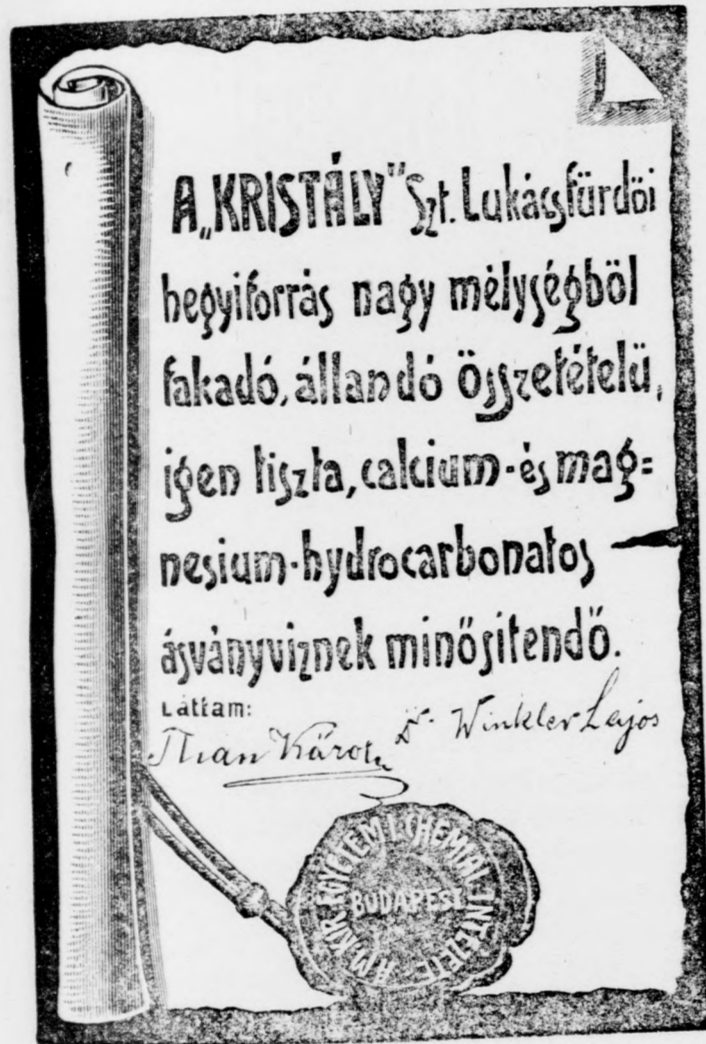 A „KRISTÁLY” Szt. Lukácsfürdői
hegyiforrás nagy mélységből
fakadó, állandó összetételű,
igen tiszta, calcium-és mag=
nesium-hydrocarbonatos
ásványviznek minősitendő.
Láttam:
Than Károly Dr. Winkler Lajos
A M. KIR. EGYETEMI CHEMIAI INTÉZETE
BUDAPEST